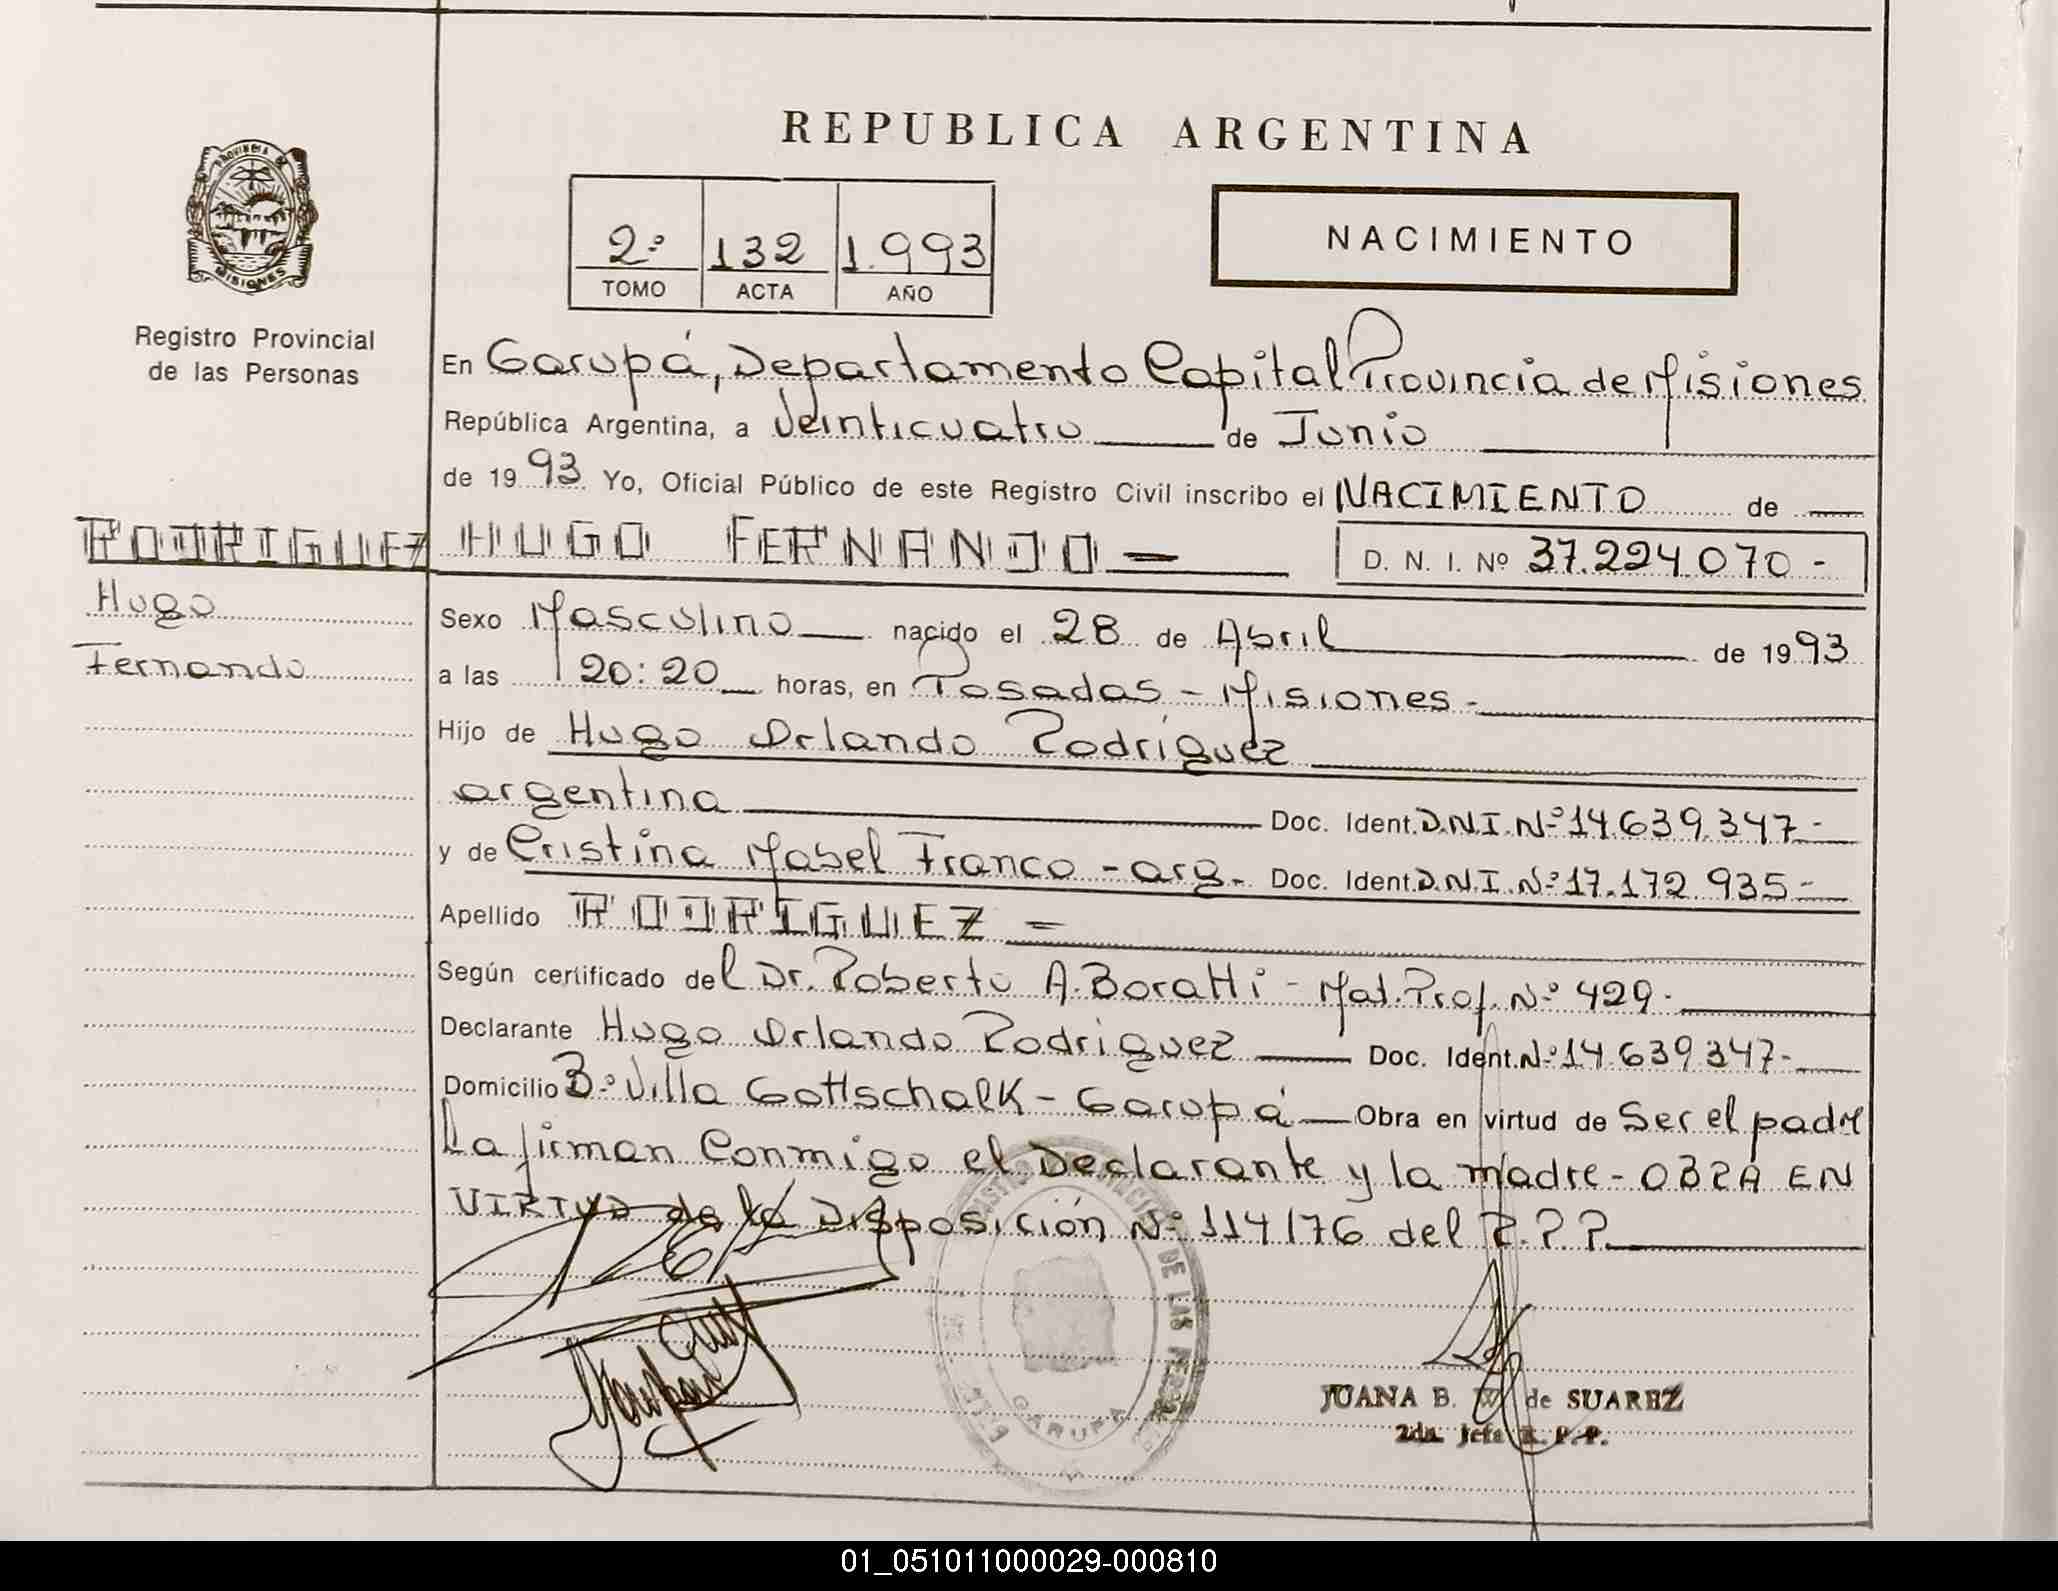 REPUBLICA ARGENTINA
PROVINCIA DE
MISIONES
Registro Provincial
de las Personas
2º 132 1.993
TOMO ACTA AÑO
NACIMIENTO
En Garupá, Departamento Capital Provincia de Misiones
República Argentina, a Veinticuatro de Junio
de 1993 Yo, Oficial Público de este Registro Civil inscribo el NACIMIENTO de
RODRIGUEZ HUGO FERNANDO - D. N. I. Nº 37.224.070 -
Hugo
Fernando
Sexo Masculino nacido el 28 de Abril de 1993
a las 20:20 horas, en Posadas - Misiones -
Hijo de Hugo Orlando Rodríguez
argentina Doc. Ident. D.N.I. Nº 14.639.347 -
y de Cristina Mabel Franco - arg. Doc. Ident. D.N.I. Nº 17.172.935 -
Apellido RODRIGUEZ -
Según certificado del Dr. Roberto A. Boratti - Mat. Prof. Nº 429 -
Declarante Hugo Orlando Rodriguez Doc. Ident. Nº 14.639.347 -
Domicilio Bº Villa Gottschalk - Garupá Obra en virtud de Ser el padre
La firman Conmigo el Declarante y la madre - OBRA EN
VIRTUD de la Disposición Nº 114/76 del R.P.P.
DE LAS PERSONAS
GARUPA
JUANA B. W. de SUAREZ
2da. Jefa R. P. P.
01_051011000029-000810